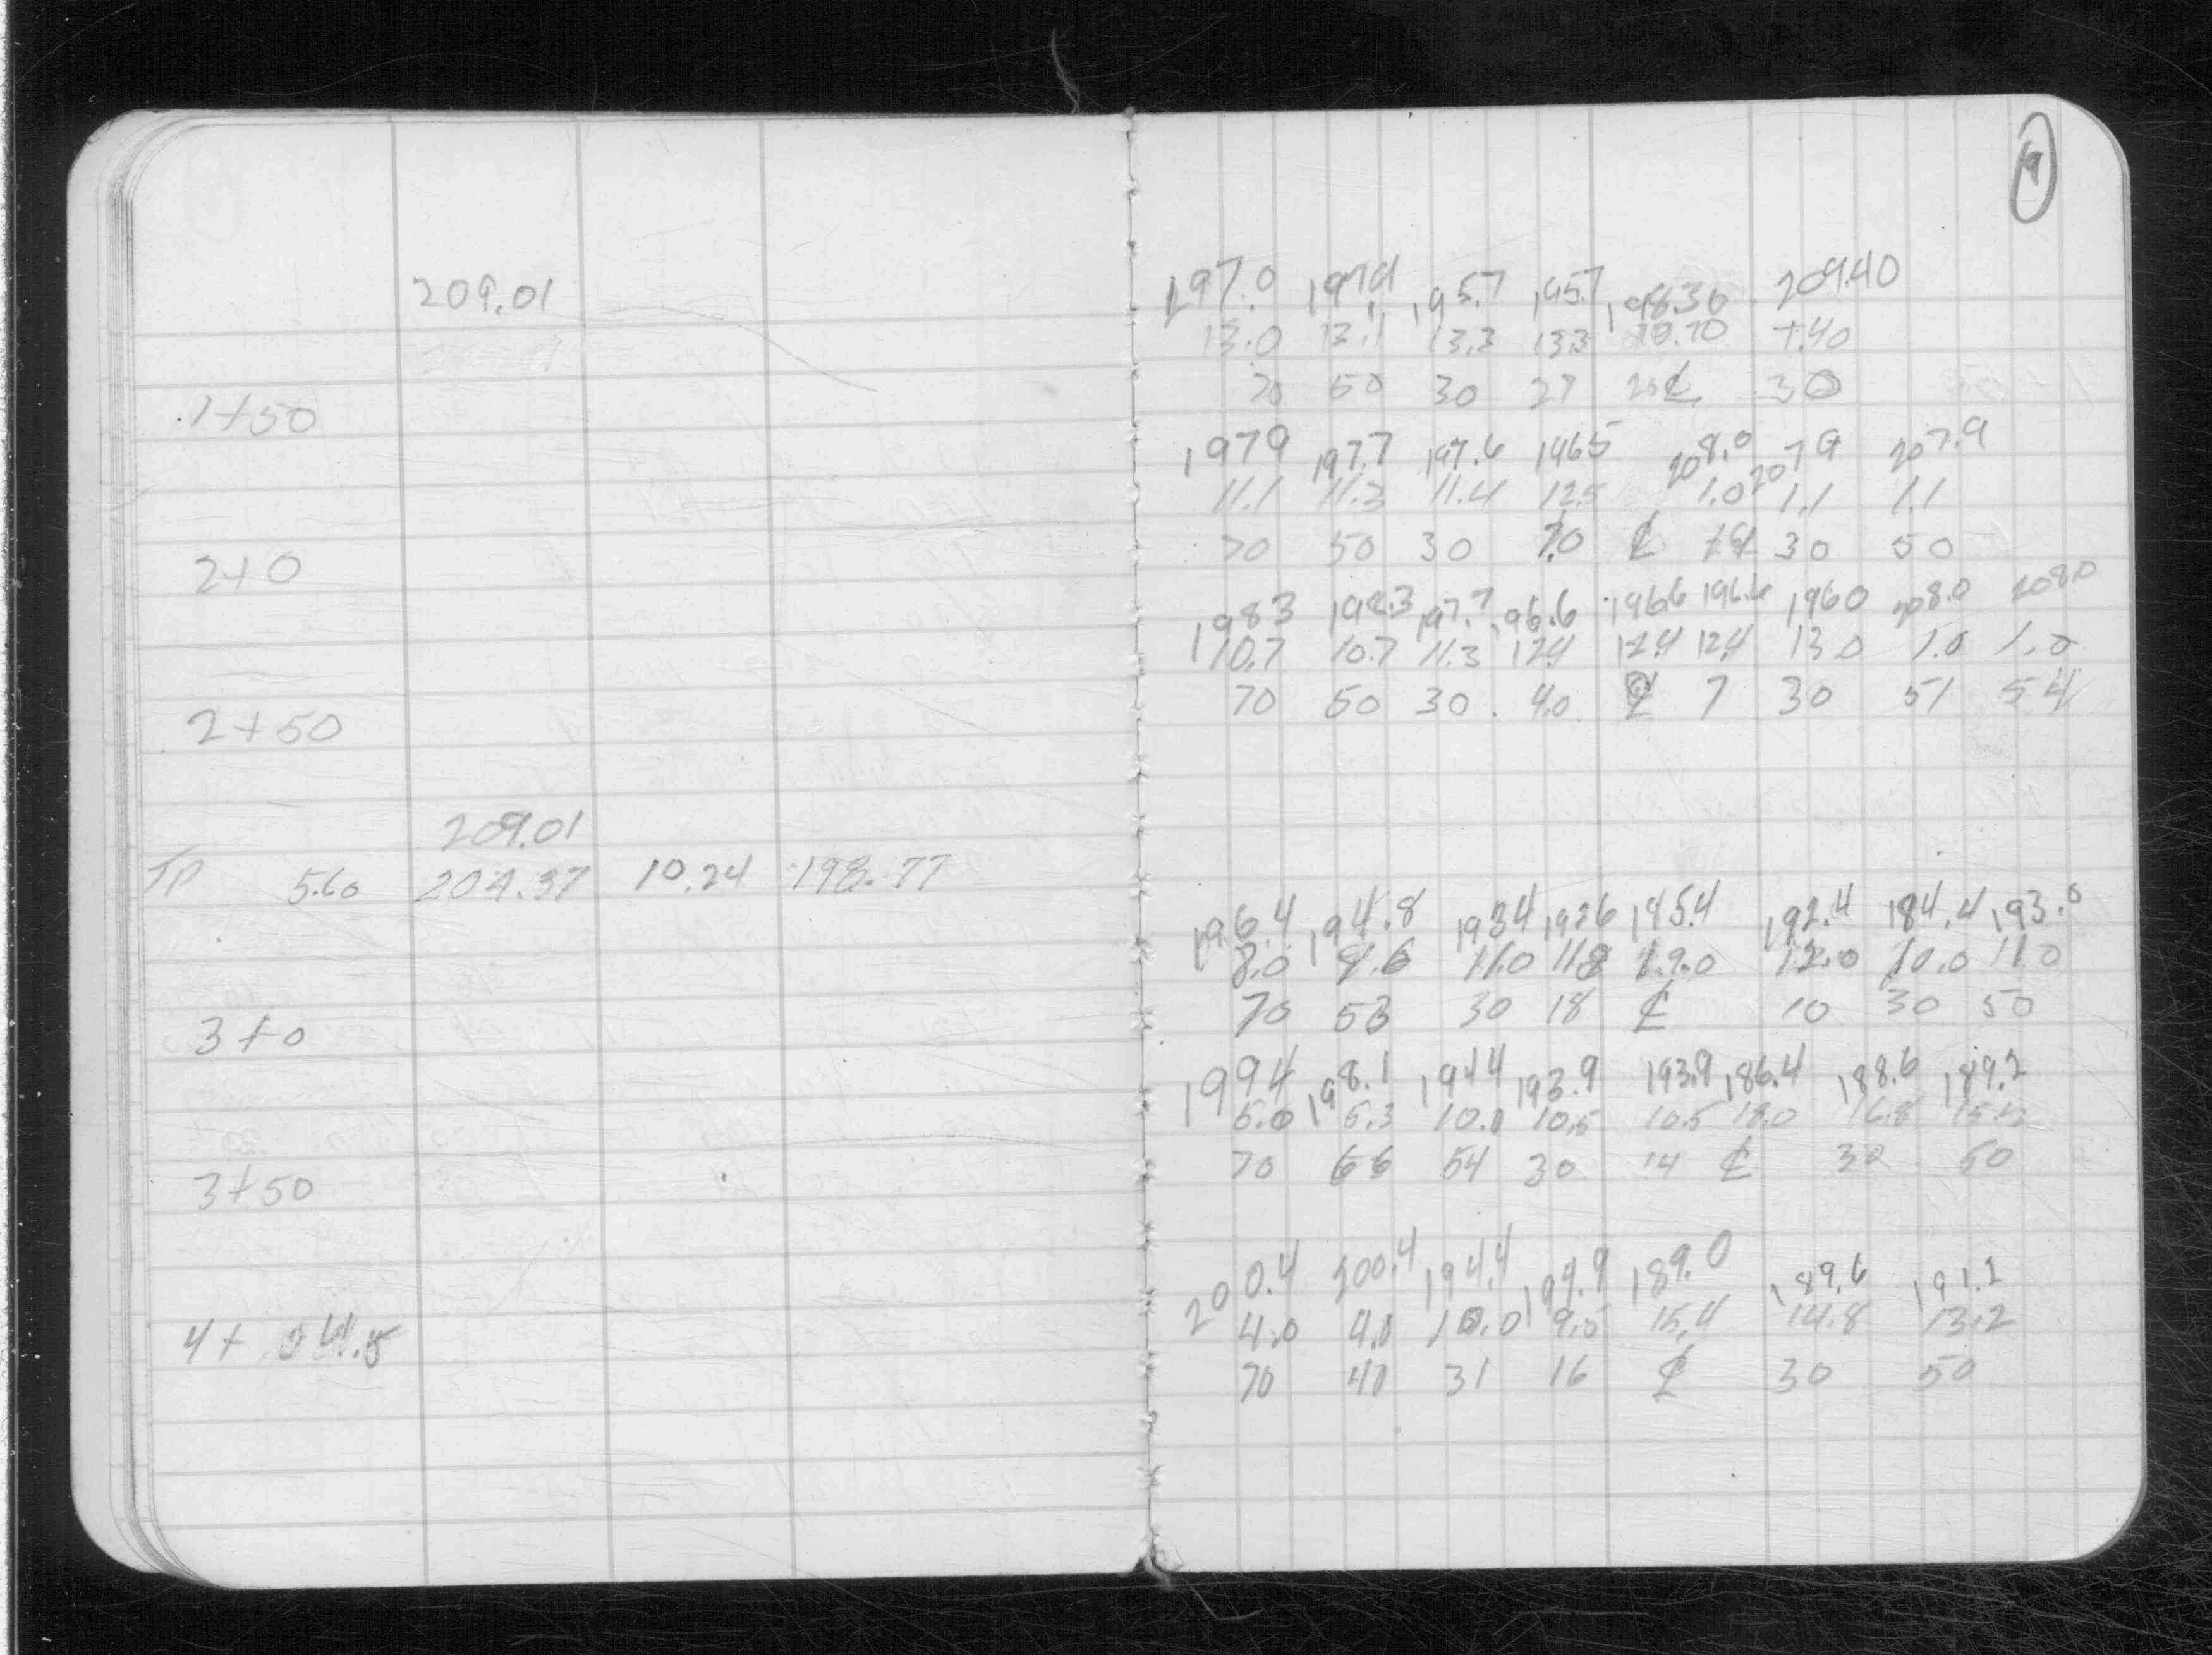 9
209.01
197.0 197.9 195.7 195.7 198.30 209.40
13.0 13.1 13.3 13.3 10.70 +.40
1+50 70 50 30 27 ℄ 30
197.9 197.7 197.6 196.5 208.0 207.9 207.9
11.1 11.3 11.4 12.5 1.0 1.1 1.1
2+0 70 50 30 ℄ 30 50
198.3 198.3 197.7 196.6 196.6 196.6 196.0 208.0 208.0
10.7 10.7 11.3 12.4 12.4 12.4 13.0 1.0 1.0
2+50 70 50 30 40 ℄ 7 30 51 54
209.01
TP 5.60 204.37 10.24 198.77
196.4 194.8 193.4 192.6 185.4 192.4 184.4 193.0
8.0 9.6 11.0 11.8 19.0 12.0 10.0 11.0
3+0 70 53 30 18 ℄ 10 30 50
199.4 198.1 194.4 193.9 193.9 186.4 188.6 189.2
5.0 5.3 10.0 10.5 10.5 18.0 16.8
3+50 70 66 54 30 14 ℄ 32 50
200.4 200.4 194.4 194.9 189.0 189.6 191.2
4.0 4.0 10.0 9.5 15.4 14.8 13.2
4+04.5 70 40 31 16 ℄ 30 50